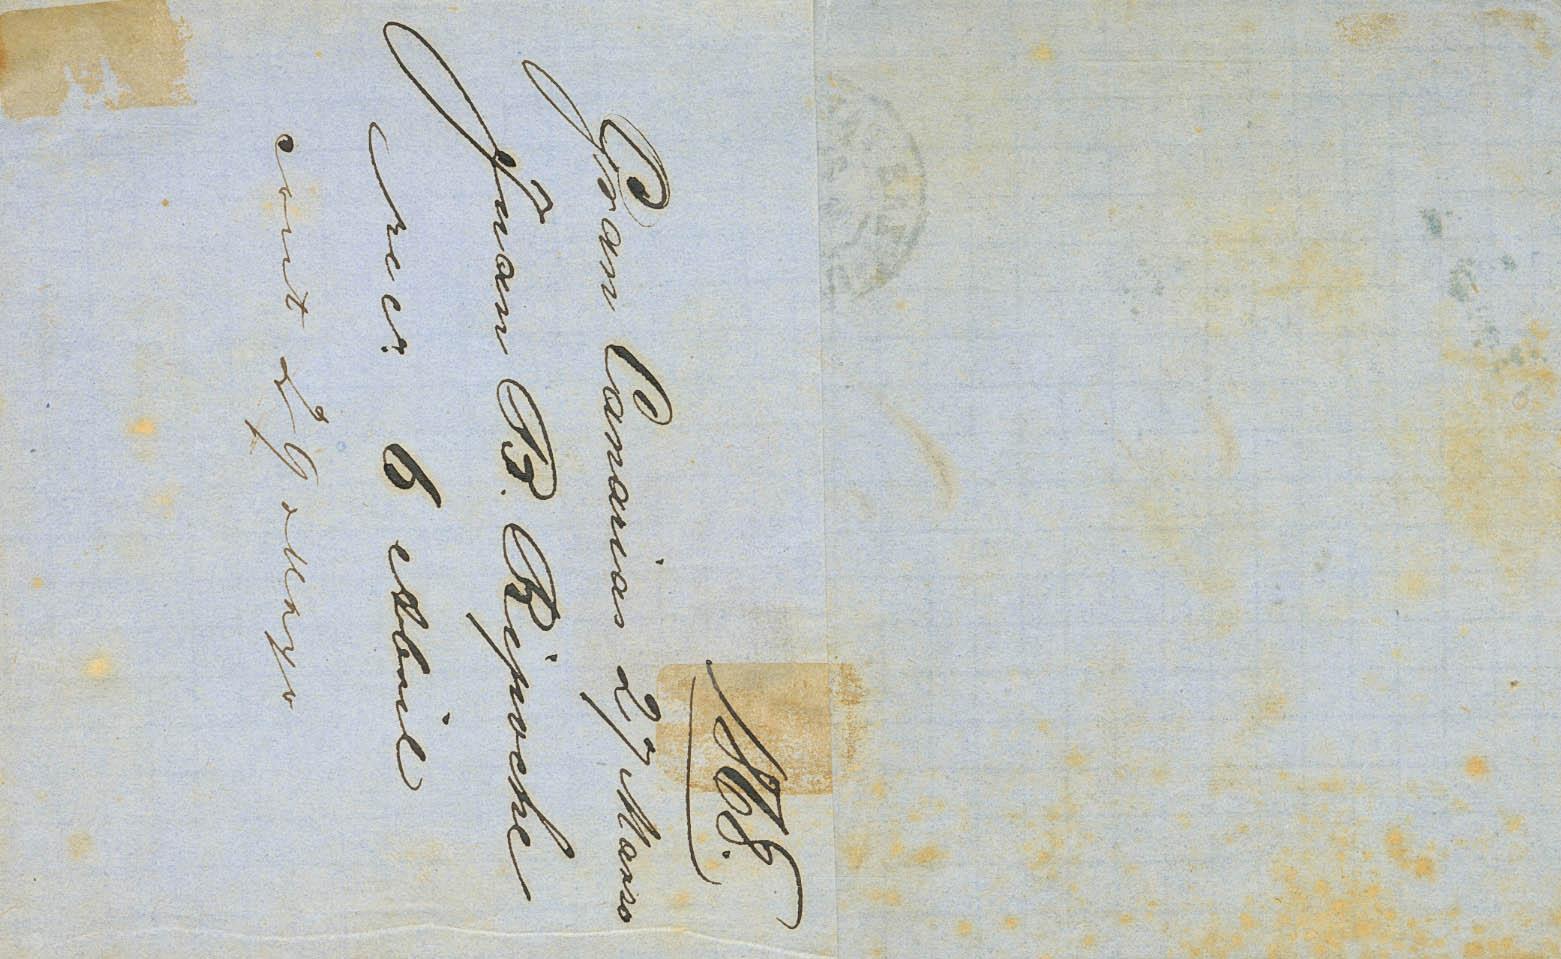 1868.
Gran Canarias 27 Marzo
Juan B. Ripoche
reci. 6 Abril
cont 29 Mayo